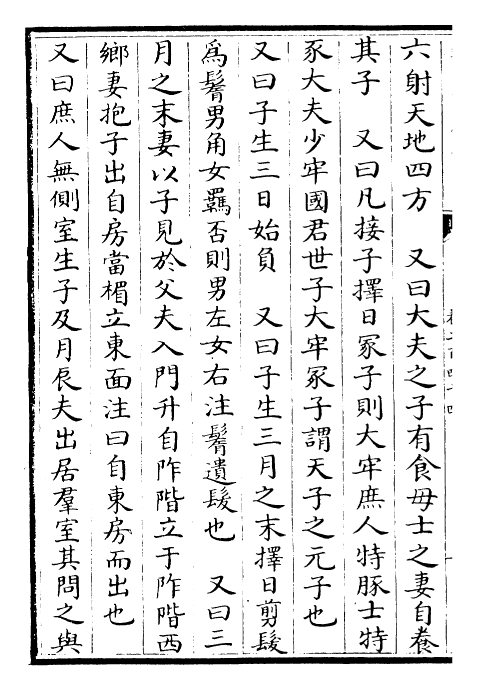 六射天地四方　又曰大夫之子有食母士之妻自養
其子　又曰凡接子擇日冢子則大牢庶人特豚士特
豕大夫少牢國君世子大牢冢子謂天子之元子也
又曰子生三日始負　又曰子生三月之末擇日剪髮
為鬌男角女羈否則男左女右注鬌遺髮也　又曰三
月之末妻以子見於父夫入門升自阼階立于阼階西
鄉妻抱子出自房當楣立東面注曰自東房而出也
又曰庶人無側室生子及月辰夫出居羣室其問之與